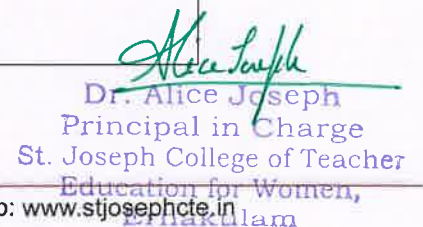 Alice Joseph
Dr. Alice Joseph
Principal in Charge
St. Joseph College of Teacher
Education for Women,
b: www.stjosephcte.in
Ernakulam